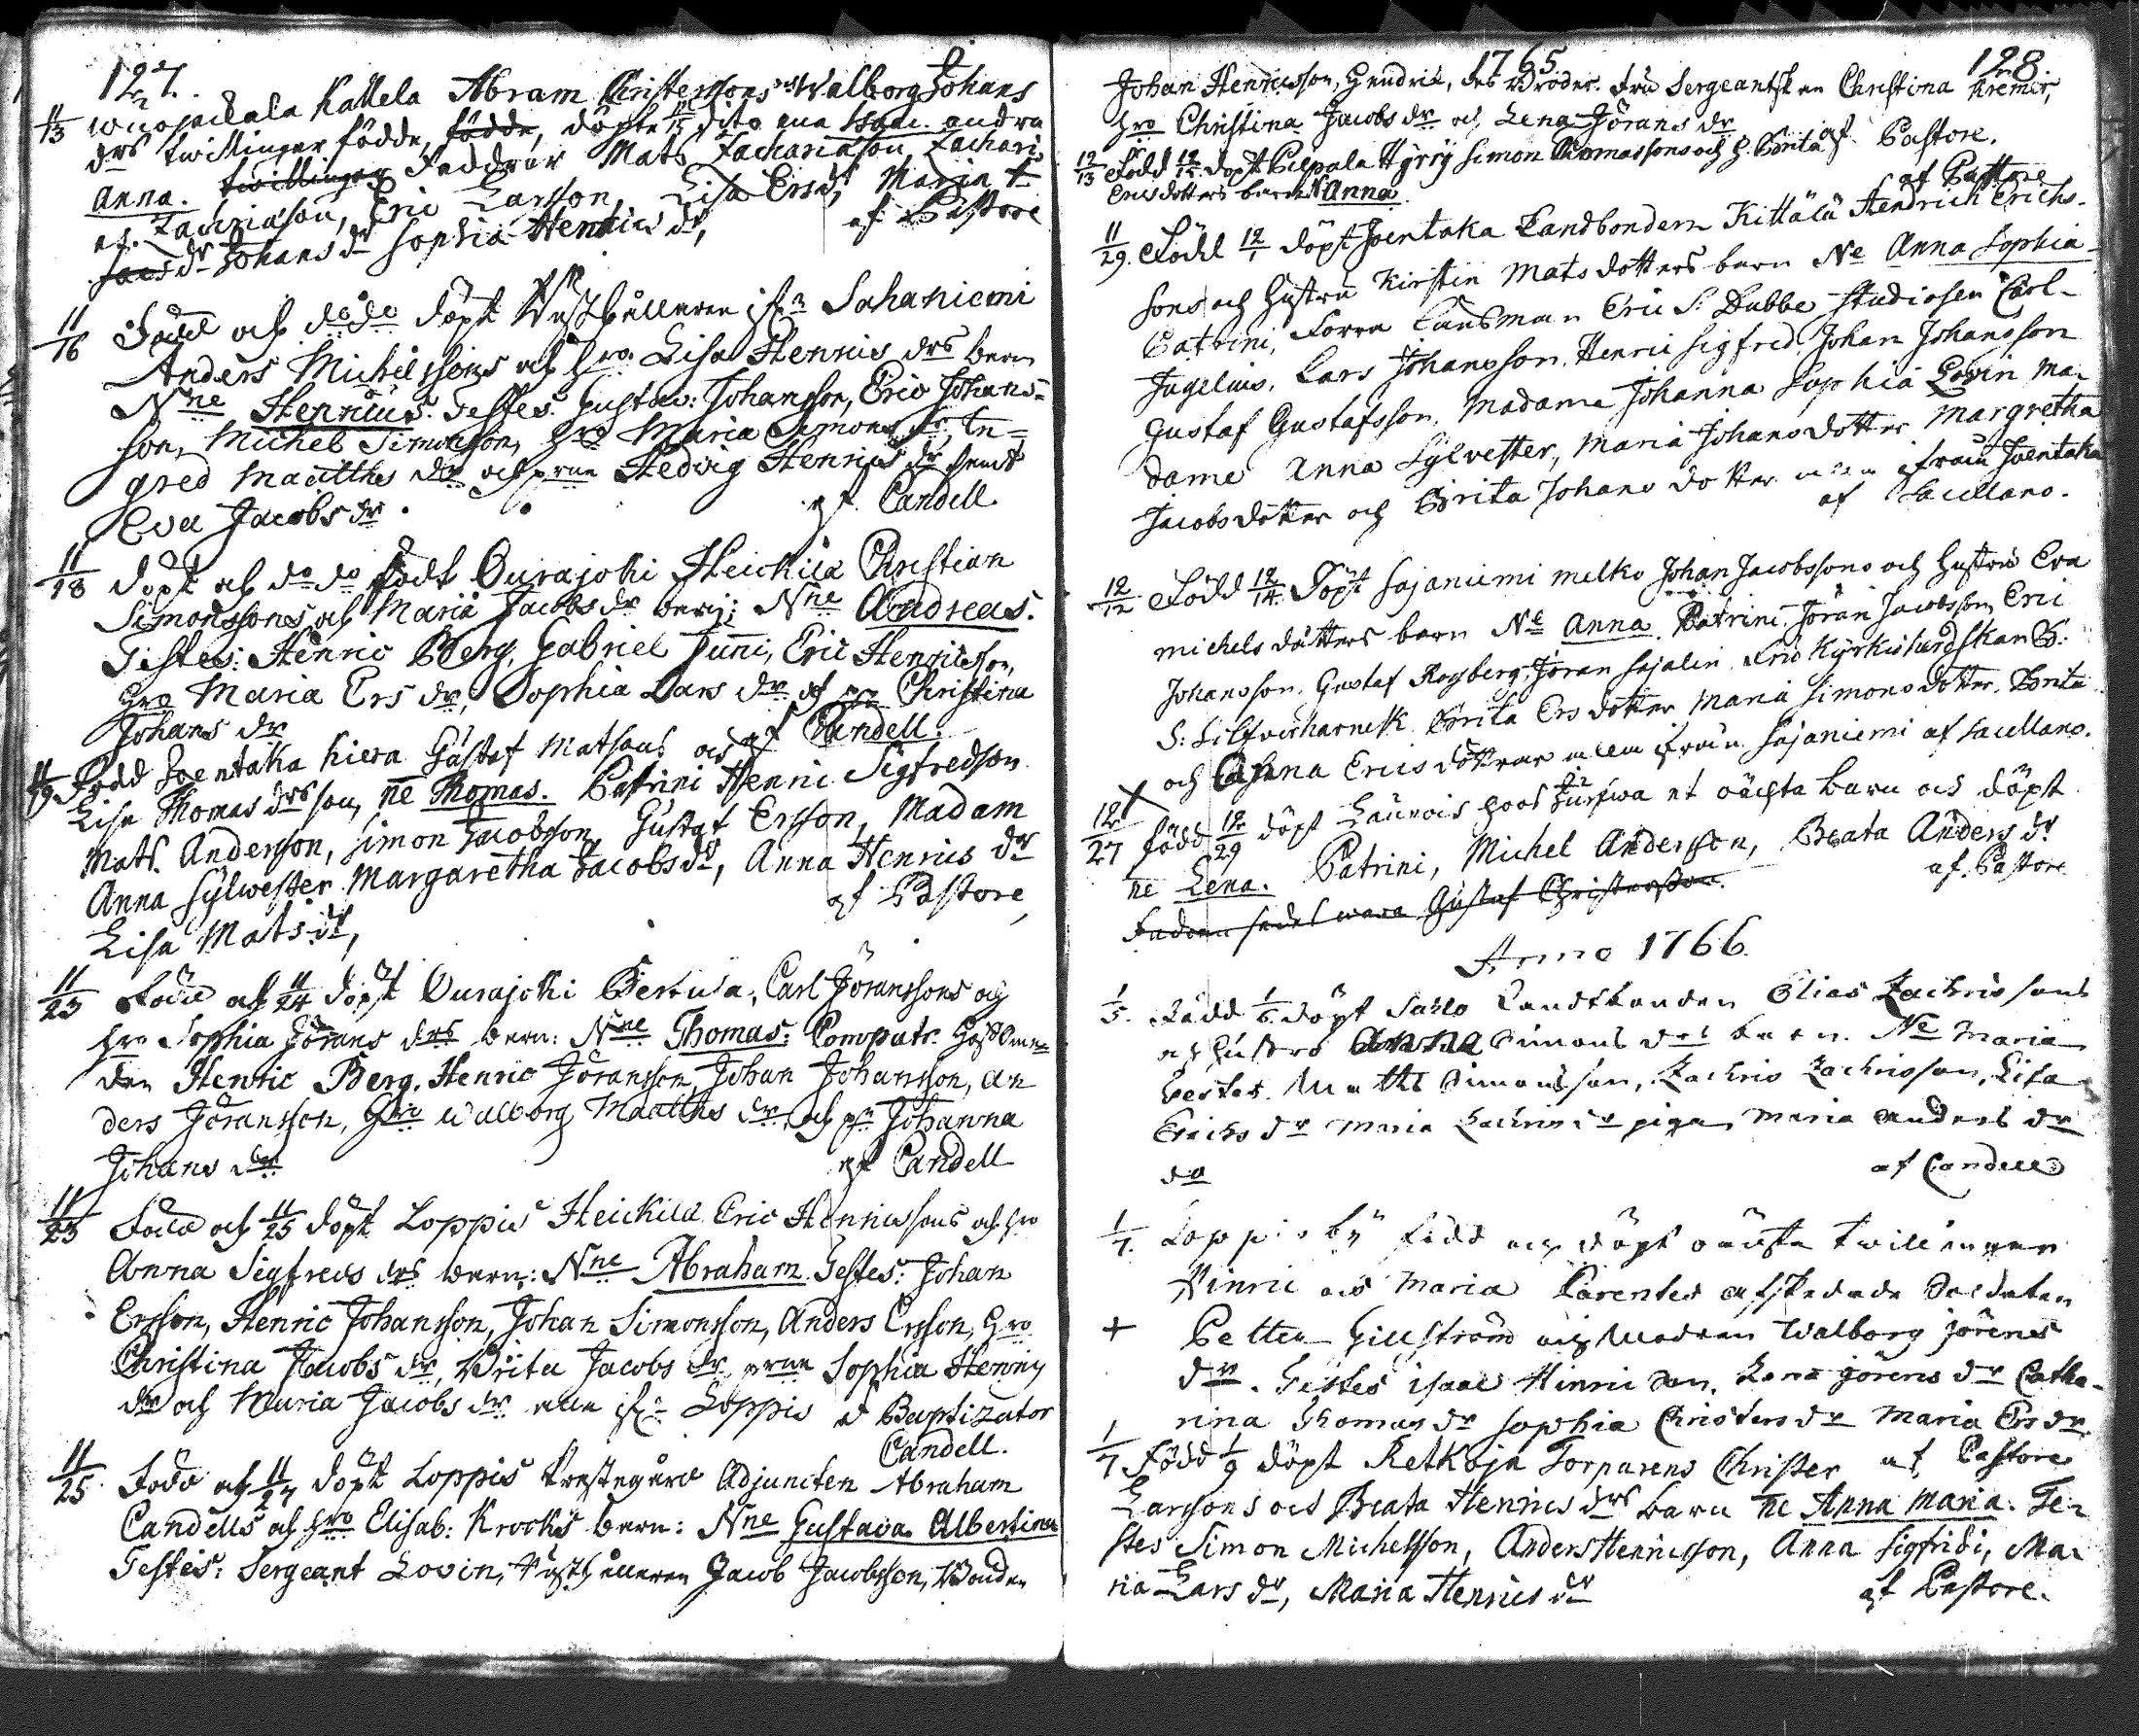 127.
11/13 Kattela Abram Christersons Walborg Johans
drs twillingar födde, födde, döpte dito ena Isaac. andra
Anna. twillingar Faddrar Mats Zachariason, Zachari
af. Zachriason, Eric Larsson, Lisa Ersdr, Maria
dr Johans dr Sophia Henrics dr, af Pastore
11/16 Född och dodo döpt Rusthållaren ifrn Sahaniemi
Anders Michelssons och hro Lisa Henrics drs barn
Nne Henricus. Testes. Gustav: Johansson, Eric Johans=
son, Michel Simonson, hro Maria Simons dr, In=
gred Matthes dr och Hedvig Henrics dr samt
Eva Jacobs dr. af. Candell
11/18 döpt och do do födt Ourajoki Heickilä Christian
Simonssons och Maria Jacobs dr barn; Nne Andreas.
Testes: Henric Berg, Gabriel Juni, Eric Henricsson,
hro Maria Ers dr, Sophia Lars dr och Christina
Johans dr af Candell.
11/19 Född Joentaka Kiera Gustaf Matsons och
Lisa Thomas drs son, ne Thomas. Patrini Henric Sigfredson
Mats. Anderson, Simon Jacobson, Gustaf Ersson, Madam
Anna Sylwester Margaretha Jacobsdr, Anna Henrics dr
Lisa Mats dr, af Pastore
11/23 Född och 11/24 döpt Ourajoki Carl Jöranssons och
hro Sophia Jörans drs barn: Nne Thomas: Compatr.
den Henric Berg, Henric Jöransson, Johan Johansson, An
ders Jöransson, hro Walborg Matthes dr och pn Johanna
Johans dr af Candell
11/23 Född och 11/25 döpt Loppis Heickilä Eric Henricssons och hro
Anna Sigfreds drs barn: Nne Abraham Testes: Johan
Ersson, Henric Johansson, Johan Simonsson, Anders Ersson, hro
Christina Jacobs dr, Britu Jacobs dr Sophia Henrics
dr och Maria Jacobs dr alla ifrn Loppis Baptizator
Candell.
11/25 Född och 11/27 döpt Loppis Prestegård Adjuncten Abraham
Candells och hro Elisab: Krocks barn: Nne Gustava Albertina
Testes: Sergeant Lovin, Rusthållaren Jacob Jacobsson, Bonden
1765 128
Johan Henricsson, Hendric, des Broder. Fru Sergeantskan Christina Kremir,
hro Christina Jacobs dr och Lena Jörans dr af Pastore.
12/13 Född 12/15 döpt Pilpala Hyry Simon Thomassons och h. Brita
Ericsdotters barn N Anna. af Pastore
11/29. Född 12/1 döpt Joentaka Landbondern Kittälä Hendrich Erichs-
sons och hustru Kirstin Mats dotters barn Ne Anna Sophia
Patrini, Förra Länsman Eric S: Dubbe Studiosen Carl
Jugelius, Lars Johansson, Henric Sigfred, Johan Johansson
Gustaf Gustafsson, Madame Johanna Sophia Lovin Ma-
dame Anna Sylvester, Maria Johansdotter Margretha
Jacobsdotter och Brita Johans dotter alla från Joentaka
af Sacellano.
12/12 Född 12/14. Döpt Sajaniemi Melko Johan Jacobssons och hustrus Eva
Michels dotters barn Ne Anna. Patrini, Jöran Jacobsson, Eric
Johansson, Gustaf Rosberg, Jöran Sajalin,
S: Silfverharnesk Brita Ers dotter Maria Simons dotter, Brita
och Anna Erics döttrar alla från Sajaniemi af Sacellano.
12/27 född 12/29 döpt Launois hoos et oächta barn och döpt
ne Lena. Patrini, Michel Anderson, Beata Anders dr
Fadren sades wara Gustaf Christerson. af. Pastore
Anno 1766.
1/5. Född 1/6. döpt Elias Zachrissons
och hustro Anna Simons drs barn. Ne Maria
Testes. Matths Simonsson, Zachris Zachrisson, Lisa
Erichs dr Maria Zachris dr pigan Maria Anders dr
do af Candell
1/7. Loppis by född och döpt oäckta twillingar
Hinric och Maria Parentes afskedade Soldaten
+ Petter Gillström och Modren Walborg Jörens
dr. Testes Isaac Hinricson, Lena Jörens dr Catha-
rina Thomas dr Sophia Christers dr Maria Ers dr.
1/7 Född 1/9 döpt Retkoja Torparens Christer af Pastore
Larssons och Beata Henrics drs barn ne Anna Maria. Te-
stes Simon Michelsson, Anders Henricsson, Anna Sigfridi, Ma-
ria Lars dr, Maria Henrics dr af Pastore.